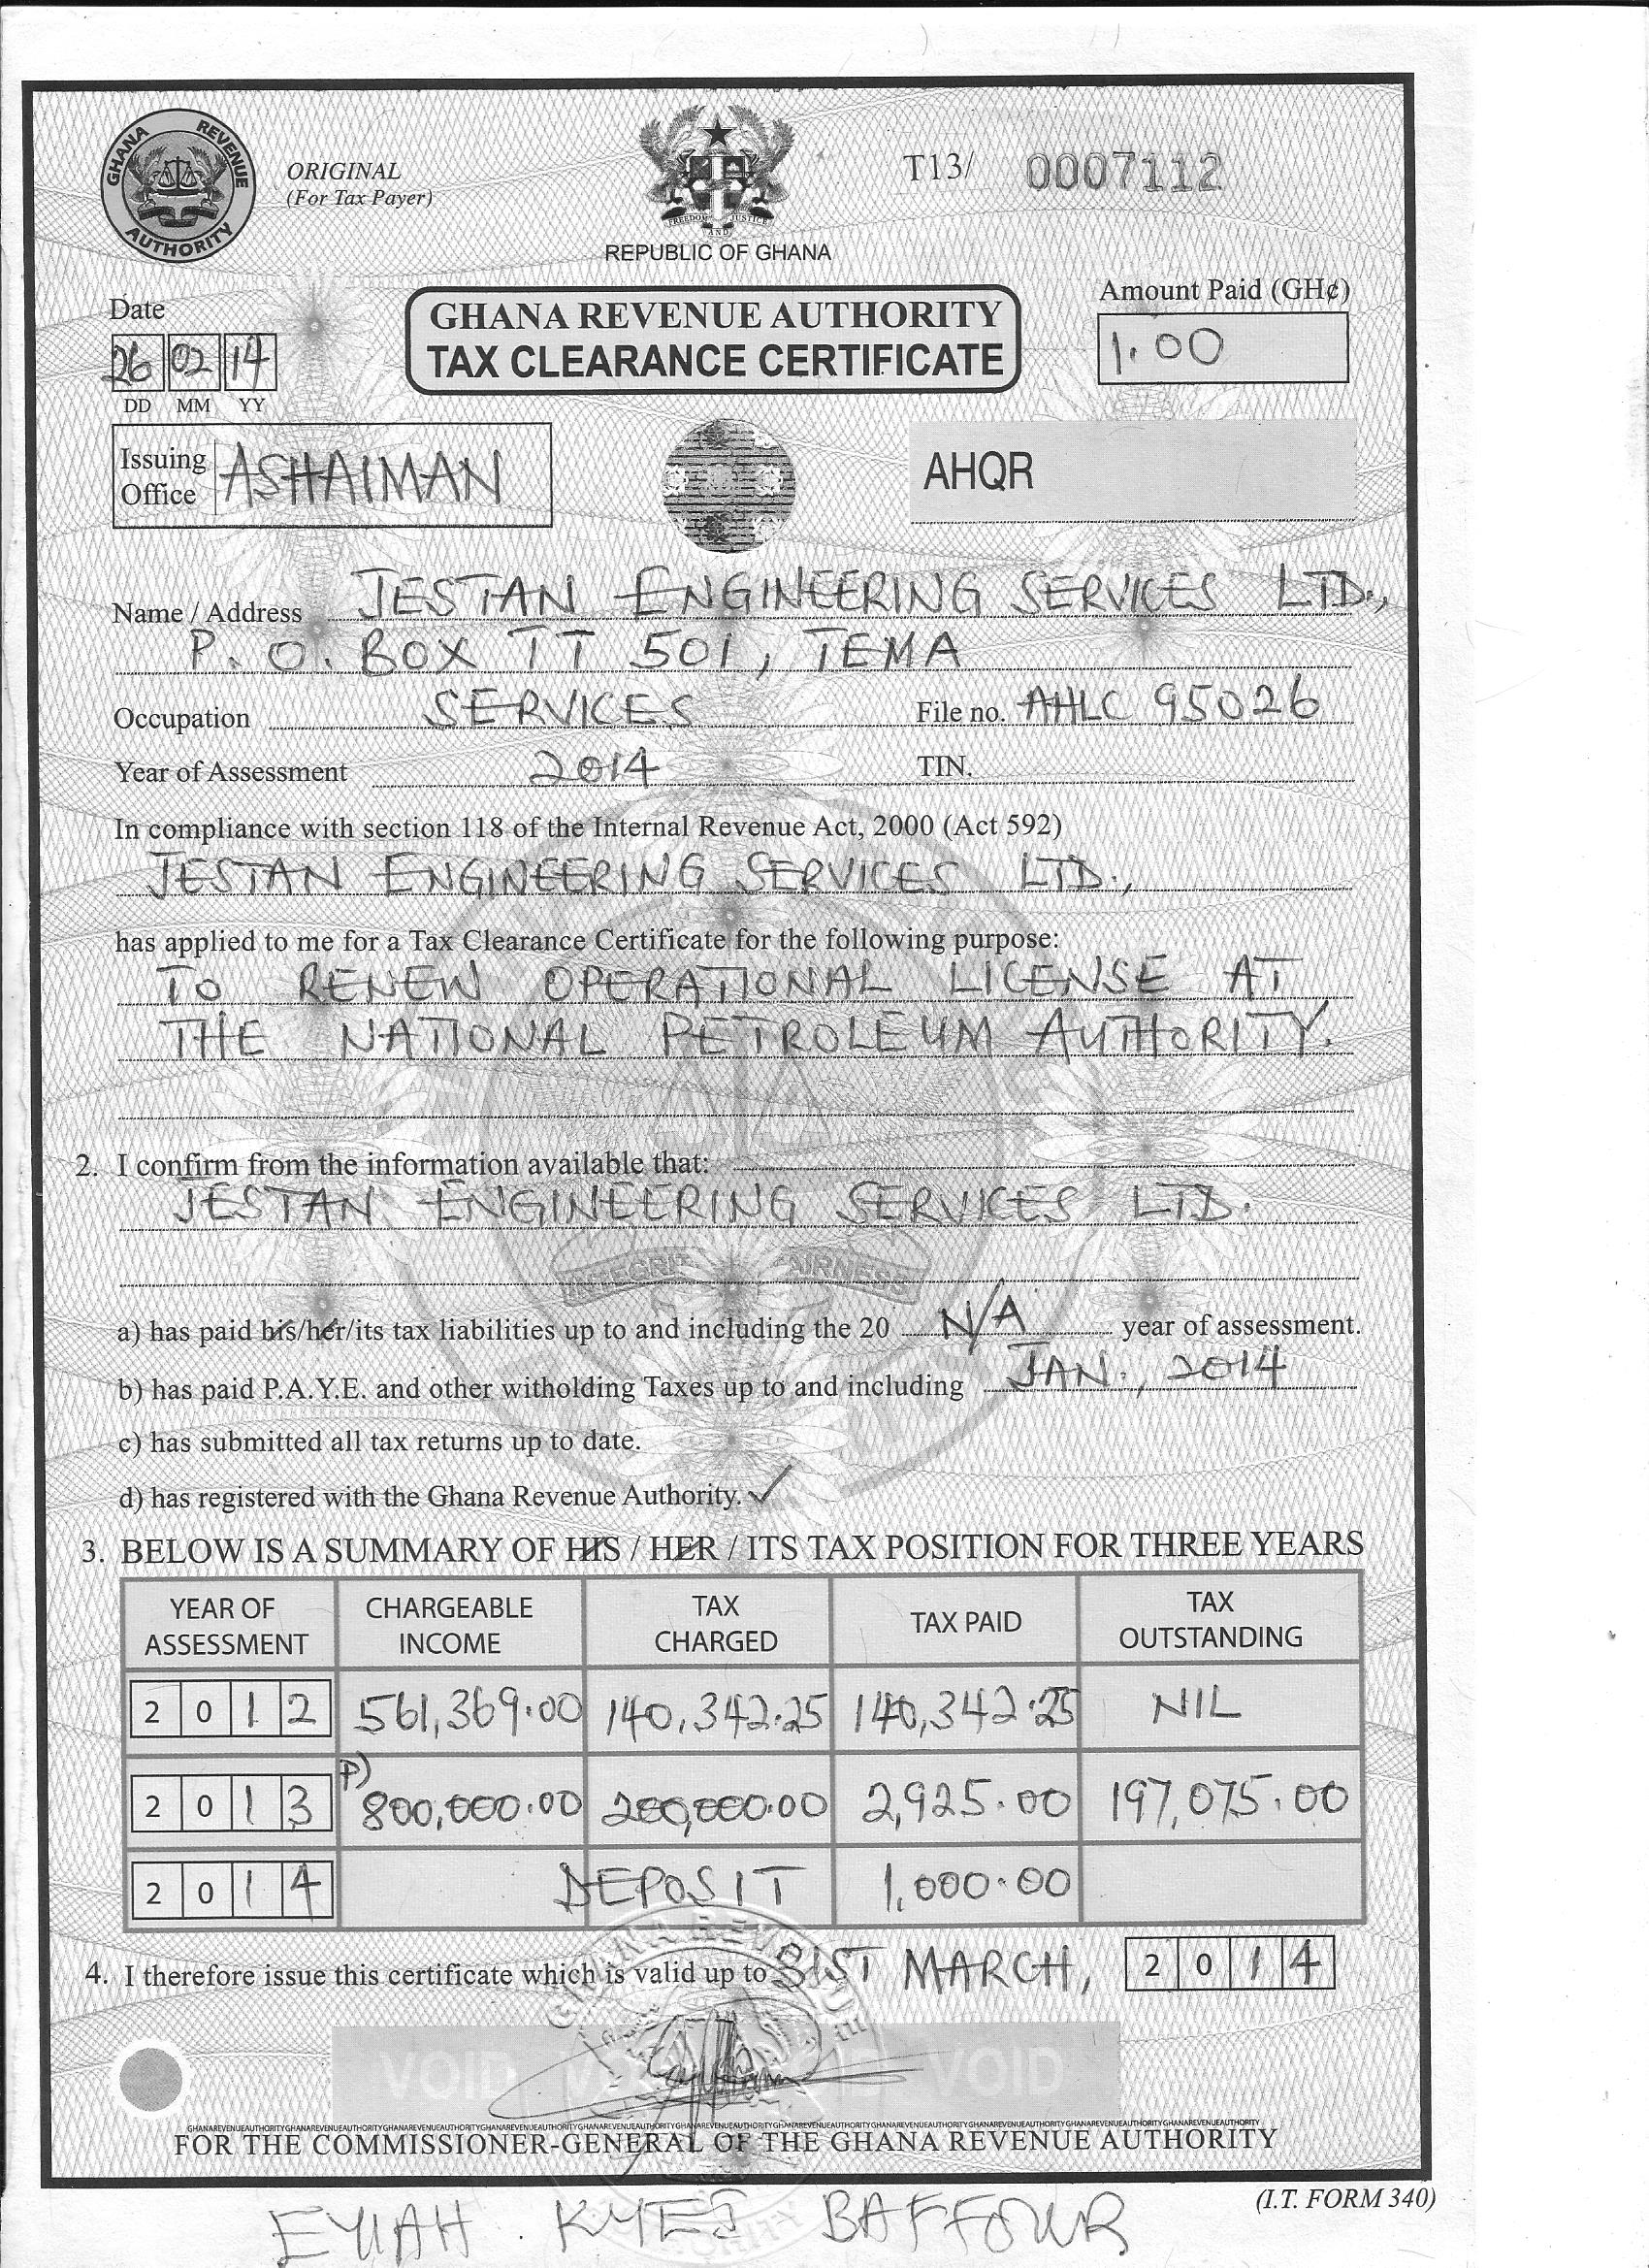 GHANA REVENUE AUTHORITY
ORIGINAL
(For Tax Payer)
FREEDOM AND JUSTICE
REPUBLIC OF GHANA
T13/ 0007112
Date
26 02 14
DD MM YY
GHANA REVENUE AUTHORITY
TAX CLEARANCE CERTIFICATE
Amount Paid (GH¢)
1.00
Issuing Office ASHAIMAN
AHQR
Name / Address JESTAN ENGINEERING SERVICES LTD.,
P. O. BOX TT 501, TEMA
Occupation SERVICES File no. AHLC 95026
Year of Assessment 2014 TIN.
In compliance with section 118 of the Internal Revenue Act, 2000 (Act 592)
JESTAN ENGINEERING SERVICES LTD.,
has applied to me for a Tax Clearance Certificate for the following purpose:
TO RENEW OPERATIONAL LICENSE AT
THE NATIONAL PETROLEUM AUTHORITY.
2. I confirm from the information available that:
JESTAN ENGINEERING SERVICES LTD.
a) has paid his/her/its tax liabilities up to and including the 20 N/A year of assessment.
b) has paid P.A.Y.E. and other witholding Taxes up to and including JAN., 2014
c) has submitted all tax returns up to date.
d) has registered with the Ghana Revenue Authority. ✓
3. BELOW IS A SUMMARY OF HIS / HER / ITS TAX POSITION FOR THREE YEARS
YEAR OF ASSESSMENT CHARGEABLE INCOME TAX CHARGED TAX PAID TAX OUTSTANDING
2012 561,369.00 140,342.25 140,342.25 NIL
2013 P) 800,000.00 200,000.00 2,925.00 197,075.00
2014 DEPOSIT 1,000.00
4. I therefore issue this certificate which is valid up to 31ST MARCH, 2014
VOID VOID VOID VOID
GHANAREVENUEAUTHORITYGHANAREVENUEAUTHORITYGHANAREVENUEAUTHORITYGHANAREVENUEAUTHORITYGHANAREVENUEAUTHORITYGHANAREVENUEAUTHORITYGHANAREVENUEAUTHORITYGHANAREVENUEAUTHORITYGHANAREVENUEAUTHORITYGHANAREVENUEAUTHORITYGHANAREVENUEAUTHORITY
FOR THE COMMISSIONER-GENERAL OF THE GHANA REVENUE AUTHORITY
(I.T. FORM 340)
KYEI BAFFOUR